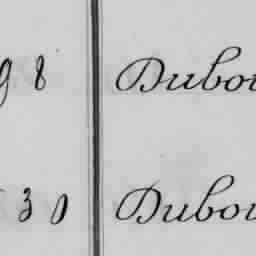 98 Dubou
30 Dubou